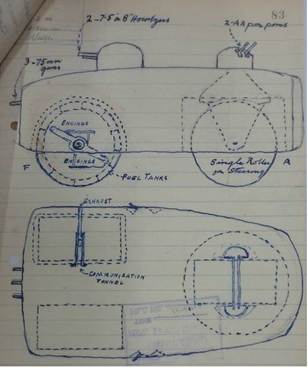 83
2-7·5 or 8" Howitzers
2-AA pom poms
3-75mm
guns
ENGINES
ENGINES
FUEL TANKS
F
Single Roller
for Steering
A
EXHAUST
COMMUNICATION
TUNNEL